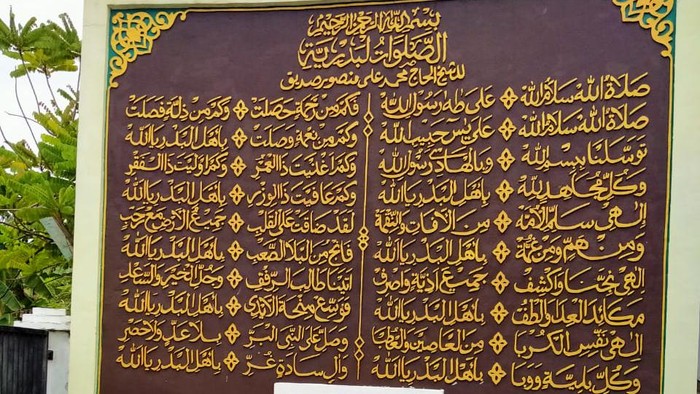 بسم الله الرحمن الرحيم
الصلوات البدرية
للشيخ الحاج محمد على منصور صديق
صلاة الله سلام الله ❖ على طه رسول الله
صلاة الله سلام الله ❖ على يس حبيب الله
توسلنا ببسم الله ❖ وبالهاد رسول الله
وكل مجاهد لله ❖ باهل البدر يا الله
الهى سلم الامة ❖ من الافات والنقمة
ومن هم ومن غمة ❖ باهل البدر يا الله
الهى نجنا واكشف ❖ جميع اذية واصرف
مكائد العدا والطف ❖ باهل البدر يا الله
الهى نفس الكربا ❖ من العاصين والعطبا
وكل بلية ووبا ❖ باهل البدر يا الله
فكم من رحمة حصلت ❖ وكم من ذلة فصلت
وكم من نعمة وصلت ❖ باهل البدر يا الله
وكم اغنيت ذا العمر ❖ وكم اوليت ذا الفقر
وكم عافيت ذا الوزر ❖ باهل البدر يا الله
لقد ضاقت على القلب ❖ جميع الارض مع رحب
فانج من البلا الصعب ❖ باهل البدر يا الله
اتينا طالب الرفد ❖ وجل الخير والسعد
فوسع منحة الايدى ❖ باهل البدر يا الله
وصل على النبى البر ❖ بلا عد ولا حصر
وال سادة غر ❖ باهل البدر يا الله